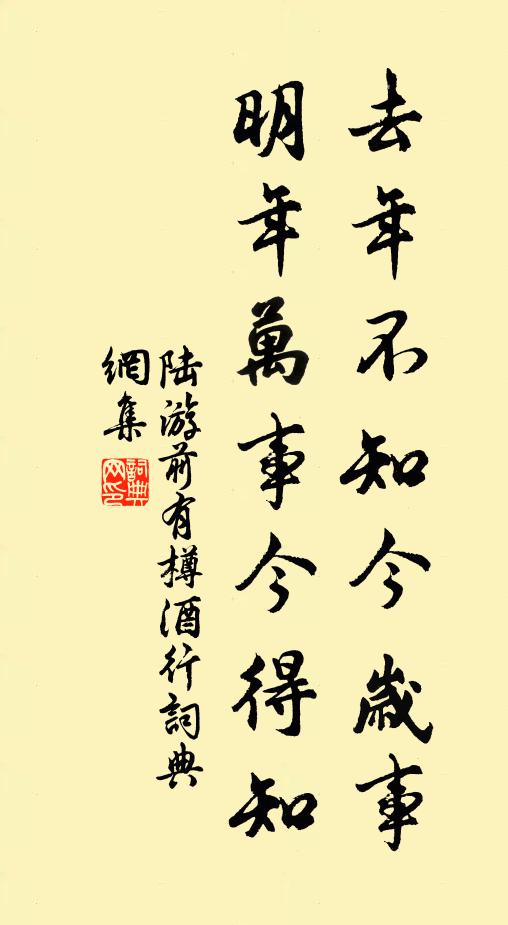 去年不知今歲事
明年萬事今得知
陆游前有樽酒行詞典
網集
詞典
网印